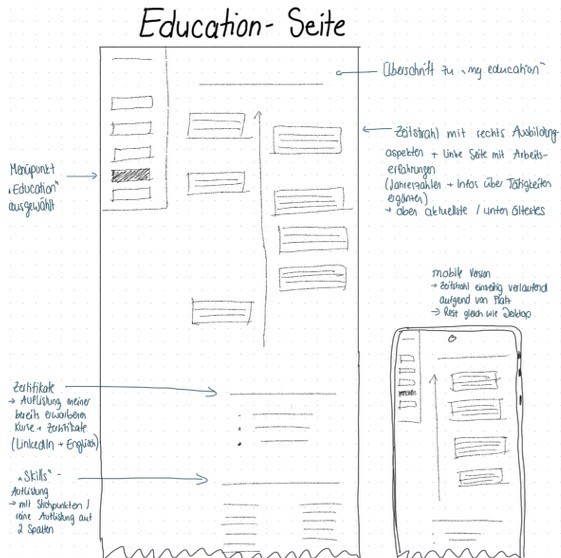 Education-Seite
Überschrift zu "my education"
Zeitstrahl mit rechts Ausbildung-
aspekten + linke Seite mit Arbeits-
erfahrungen
(Jahreszahlen + Infos über Tätigkeiten
ergänzen)
→ oben aktuellste / unten ältestes
Menüpunkt
"Education"
ausgewählt
mobile Version
→ Zeitstrahl einseitig verlaufend
aufgrund von Platz
→ Rest gleich wie Desktop
Zertifikate
→ Auflistung meiner
bereits erworbenen
Kurse + Zertifikate
(LinkedIn + Englisch)
"Skills" -
Auflistung
→ mit Stichpunkten /
reine Auflistung auf
2 Spalten